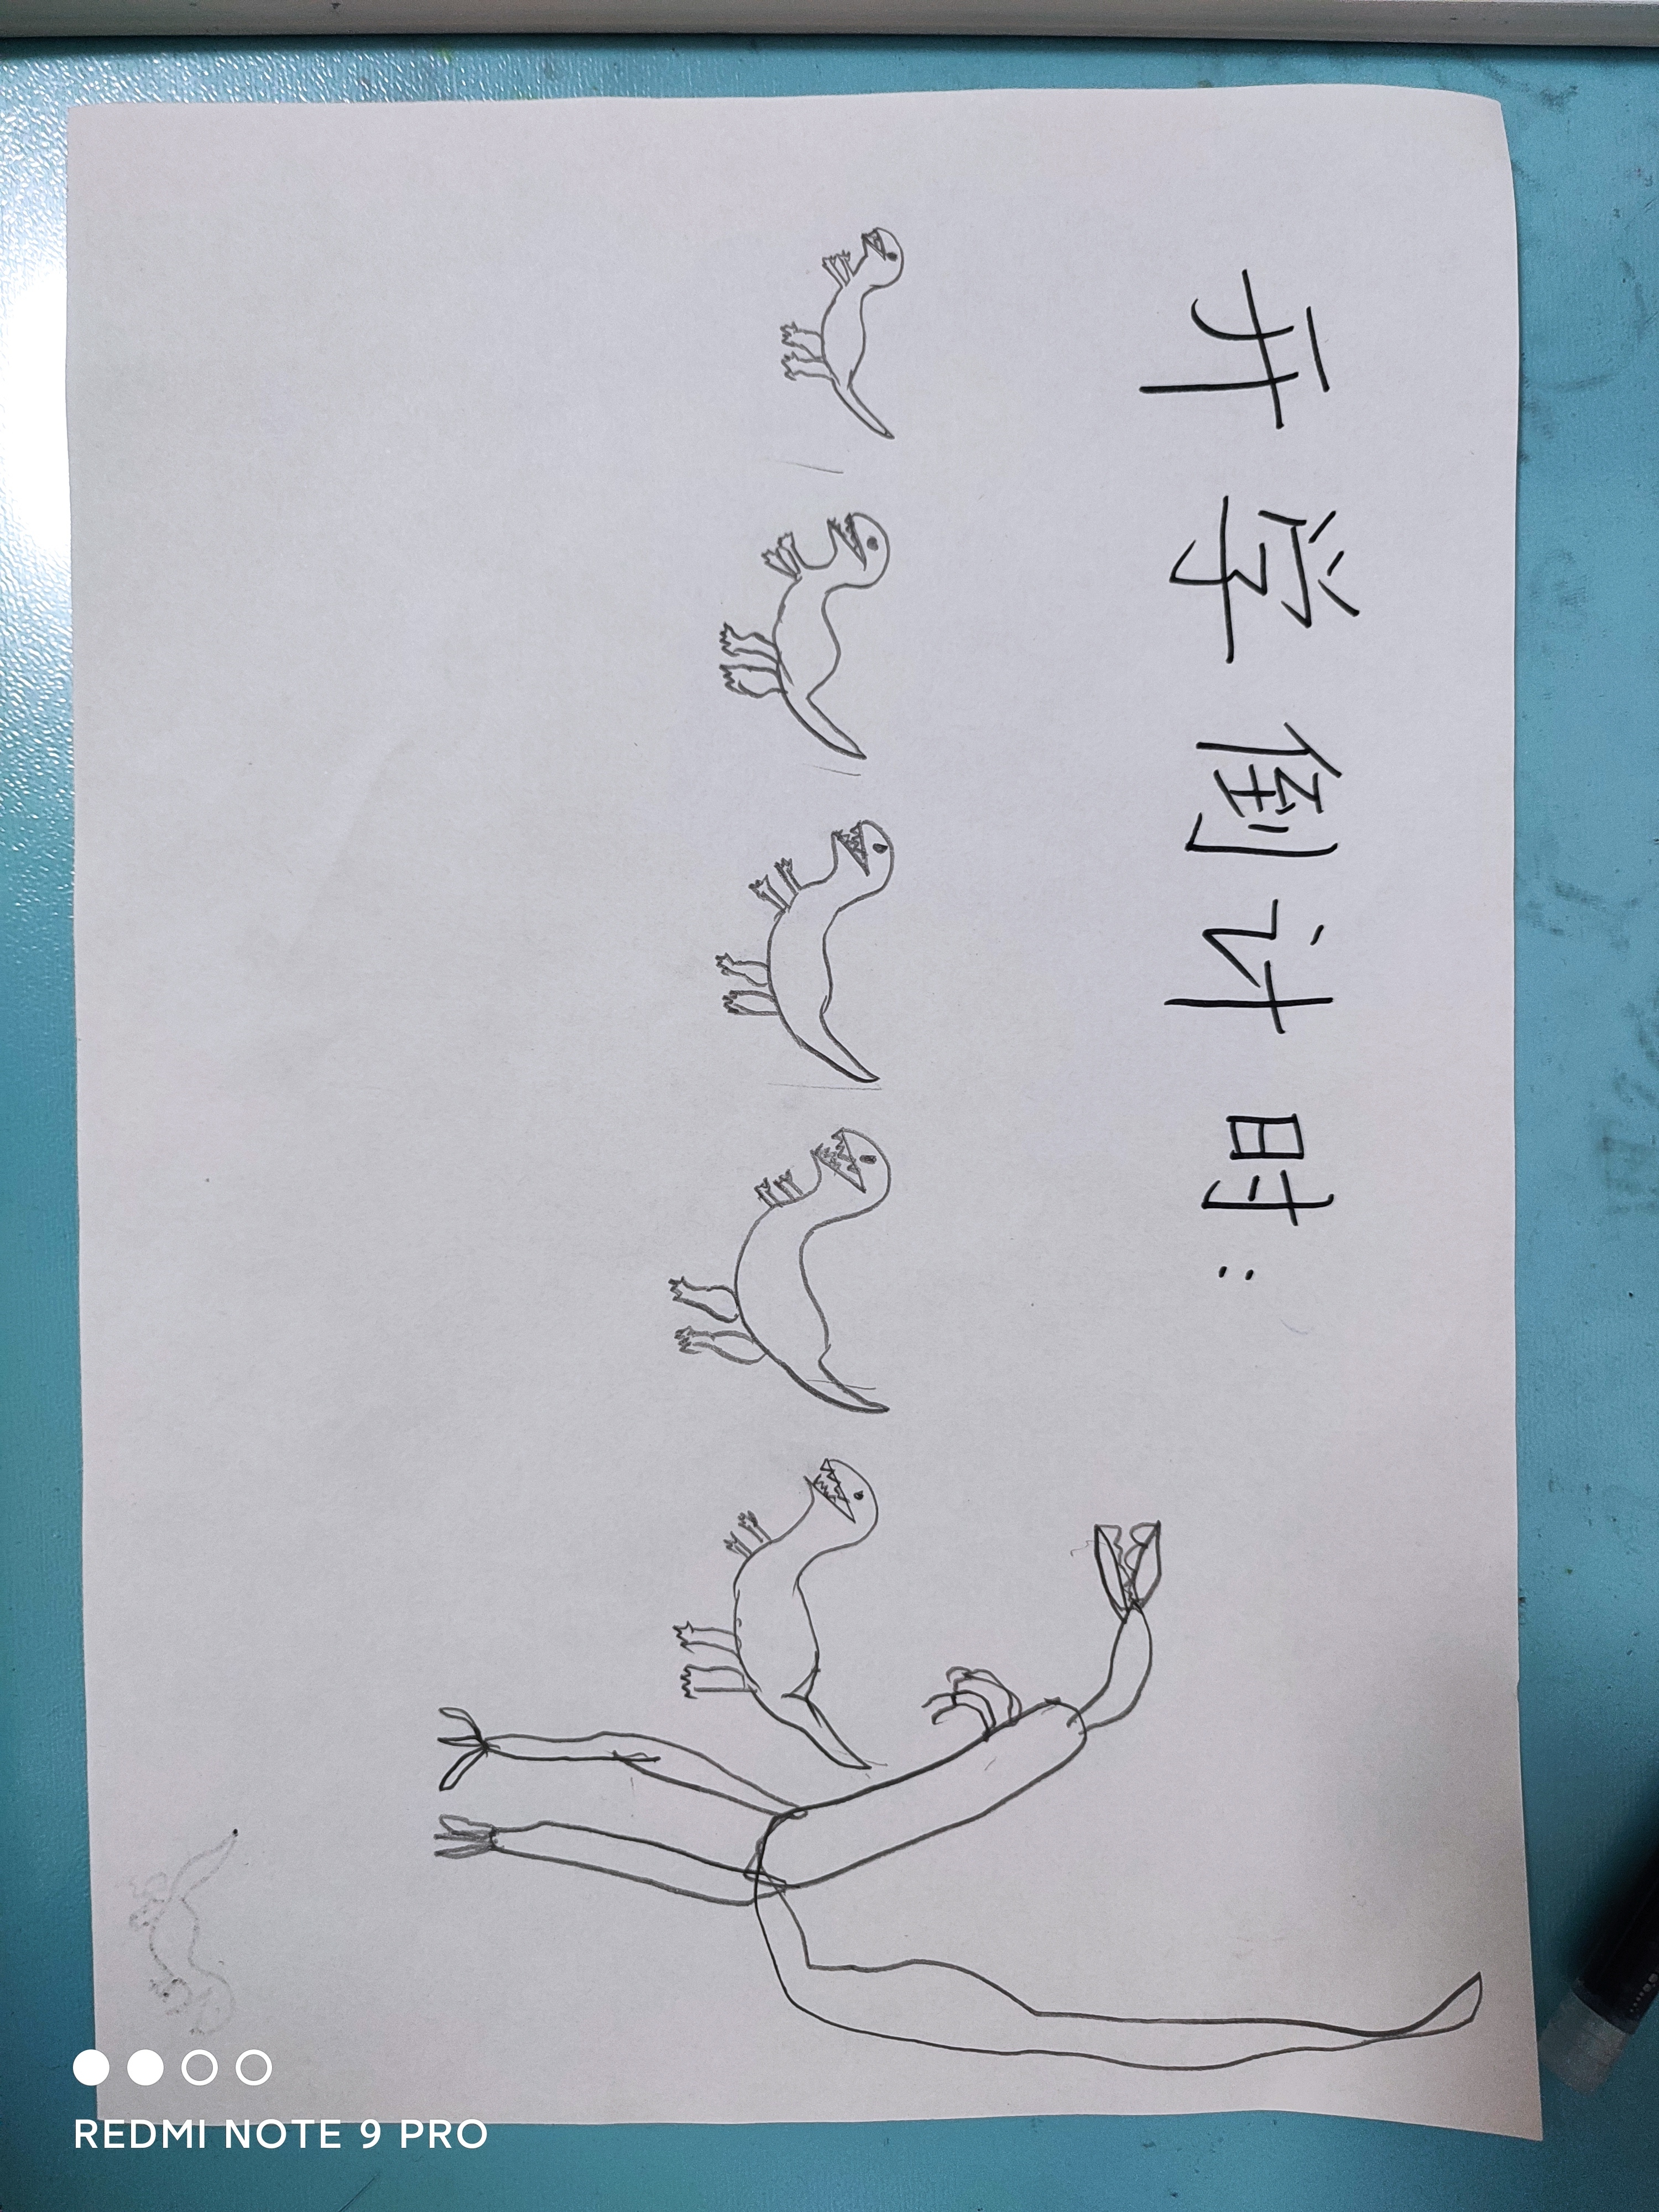 开学倒计时:
REDMI NOTE 9 PRO